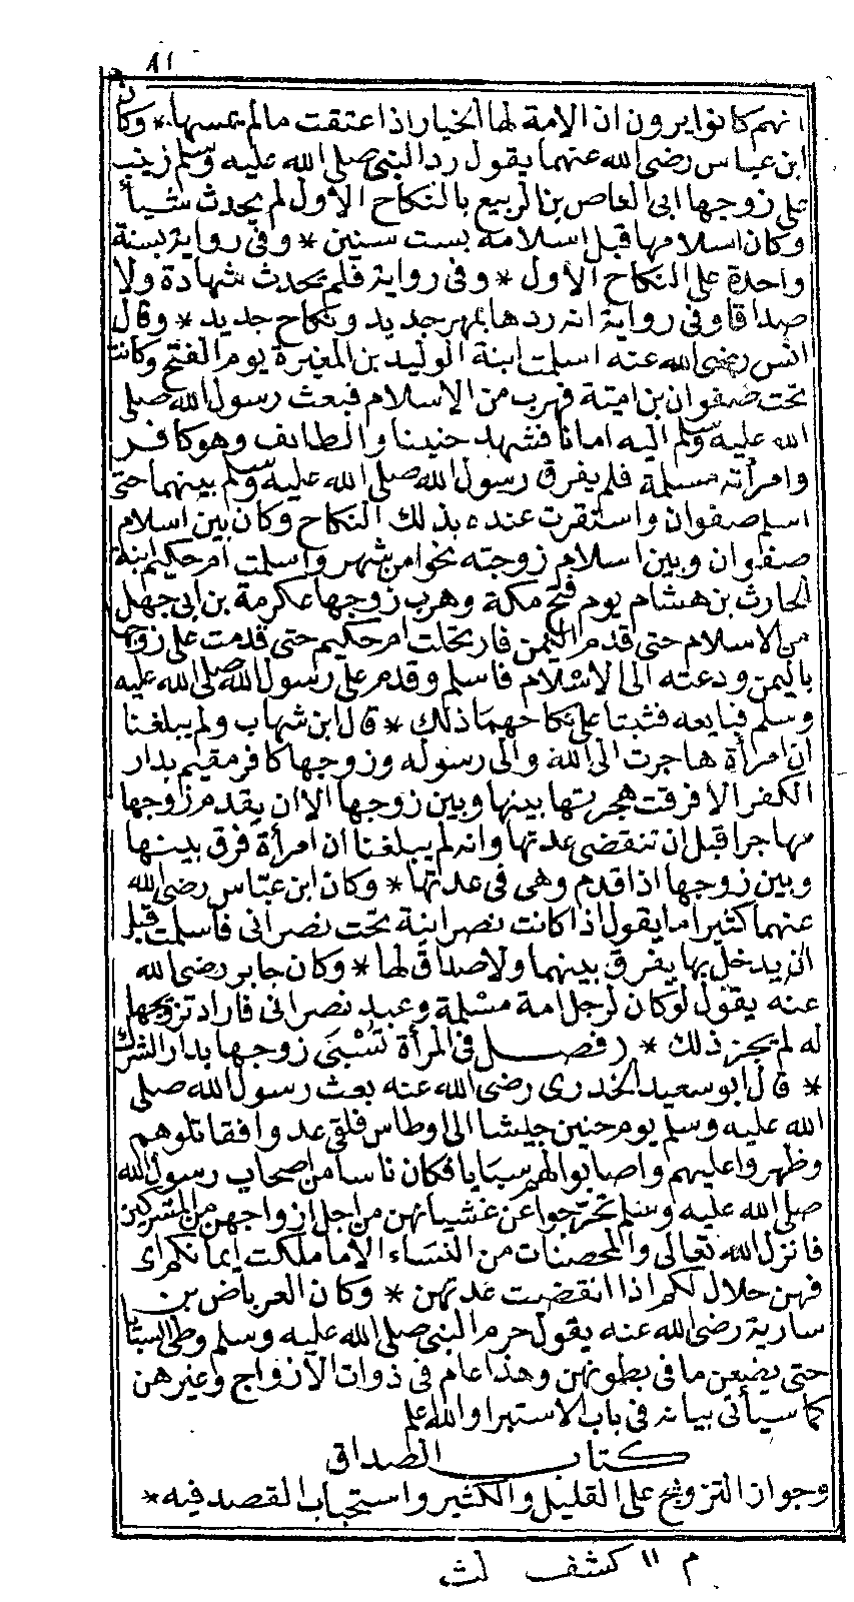 ٨١
انهم كانوا يرون ان الامة لها الخيار اذا عتقت ما لم يمسها * وكان
ابن عباس رضى الله عنهما يقول رد النبى صلى الله عليه وسلم زينب
على زوجها ابى العاص بن الربيع بالنكاح الاول لم يحدث شيأ
وكان اسلامها قبل اسلامه بست سنين * وفى رواية بسنة
واحدة على النكاح الاول * وفى رواية فلم تحدث شهادة ولا
صداقا وفى رواية انه ردها بمهر جديد ونكاح جديد * وقال
انس رضى الله عنه اسلمت ابنة الوليد بن المغيرة يوم الفتح وكانت
تحت صفوان بن امية فهرب من الاسلام فبعث رسول الله صلى
الله عليه وسلم اليه امانا فشهد حنينا والطايف وهو كافر
وامرأته مسلمة فلم يفرق رسول الله صلى الله عليه وسلم بينهما حتى
اسلم صفوان واستقرت عنده بذلك النكاح وكان بين اسلام
صفوان وبين اسلام زوجته نحوا من شهر واسلمت ام حكيم ابنة
الحارث بن هشام يوم فتح مكة وهرب زوجها عكرمة بن ابى جهل
من الاسلام حتى قدم اليمن فارتحلت ام حكيم حتى قدمت على زوجها
باليمن ودعته الى الاسلام فاسلم وقدم على رسول الله صلى الله عليه
وسلم فبايعه فثبتا على نكاحهما ذلك * قال ابن شهاب ولم يبلغنا
ان امرأة هاجرت الى الله والى رسوله وزوجها كافر مقيم بدار
الكفر الا فرقت هجرتها بينها وبين زوجها الا ان يقدم زوجها
مهاجرا قبل ان تنقضى عدتها وانه لم يبلغنا ان امرأة فرق بينها
وبين زوجها اذا قدم وهى فى عدتها * وكان ابن عباس رضى الله
عنهما كثيرا ما يقول اذا كانت نصرانية تحت نصرانى فأسلمت قبل
ان يدخل بها يفرق بينهما ولا صداق لها * وكان جابر رضى الله
عنه يقول لو كان لرجل امة مسلمة وعبد نصرانى فاراد تزويجها
له لم يجز ذلك * (فصل فى المرأة تسبى زوجها بدار الشرك
* قال ابو سعيد الخدرى رضى الله عنه بعث رسول الله صلى
الله عليه وسلم يوم حنين جيشا الى اوطاس فلقى عدوا فقاتلوهم
وظهروا عليهم واصابوا لهم سبايا فكان ناسا من اصحاب رسول الله
صلى الله عليه وسلم تحرجوا عن غشيانهن من اجل ازواجهن من المشركين
فانزل الله تعالى والمحصنات من النساء الا ما ملكت ايمانكم اى
فهن حلال لكم اذا انقضت عدتهن * وكان العرباض بن
سارية رضى الله عنه يقول حرم النبى صلى الله عليه وسلم وطى السبايا
حتى يضعن ما فى بطونهن وهذا عام فى ذوات الازواج وغيرهن
كما سيأتى بيانه فى باب الاستبرا والله اعلم
كتاب الصداق
وجواز التزويج على القليل والكثير واستحباب القصد فيه *
م ١١ كشف لث